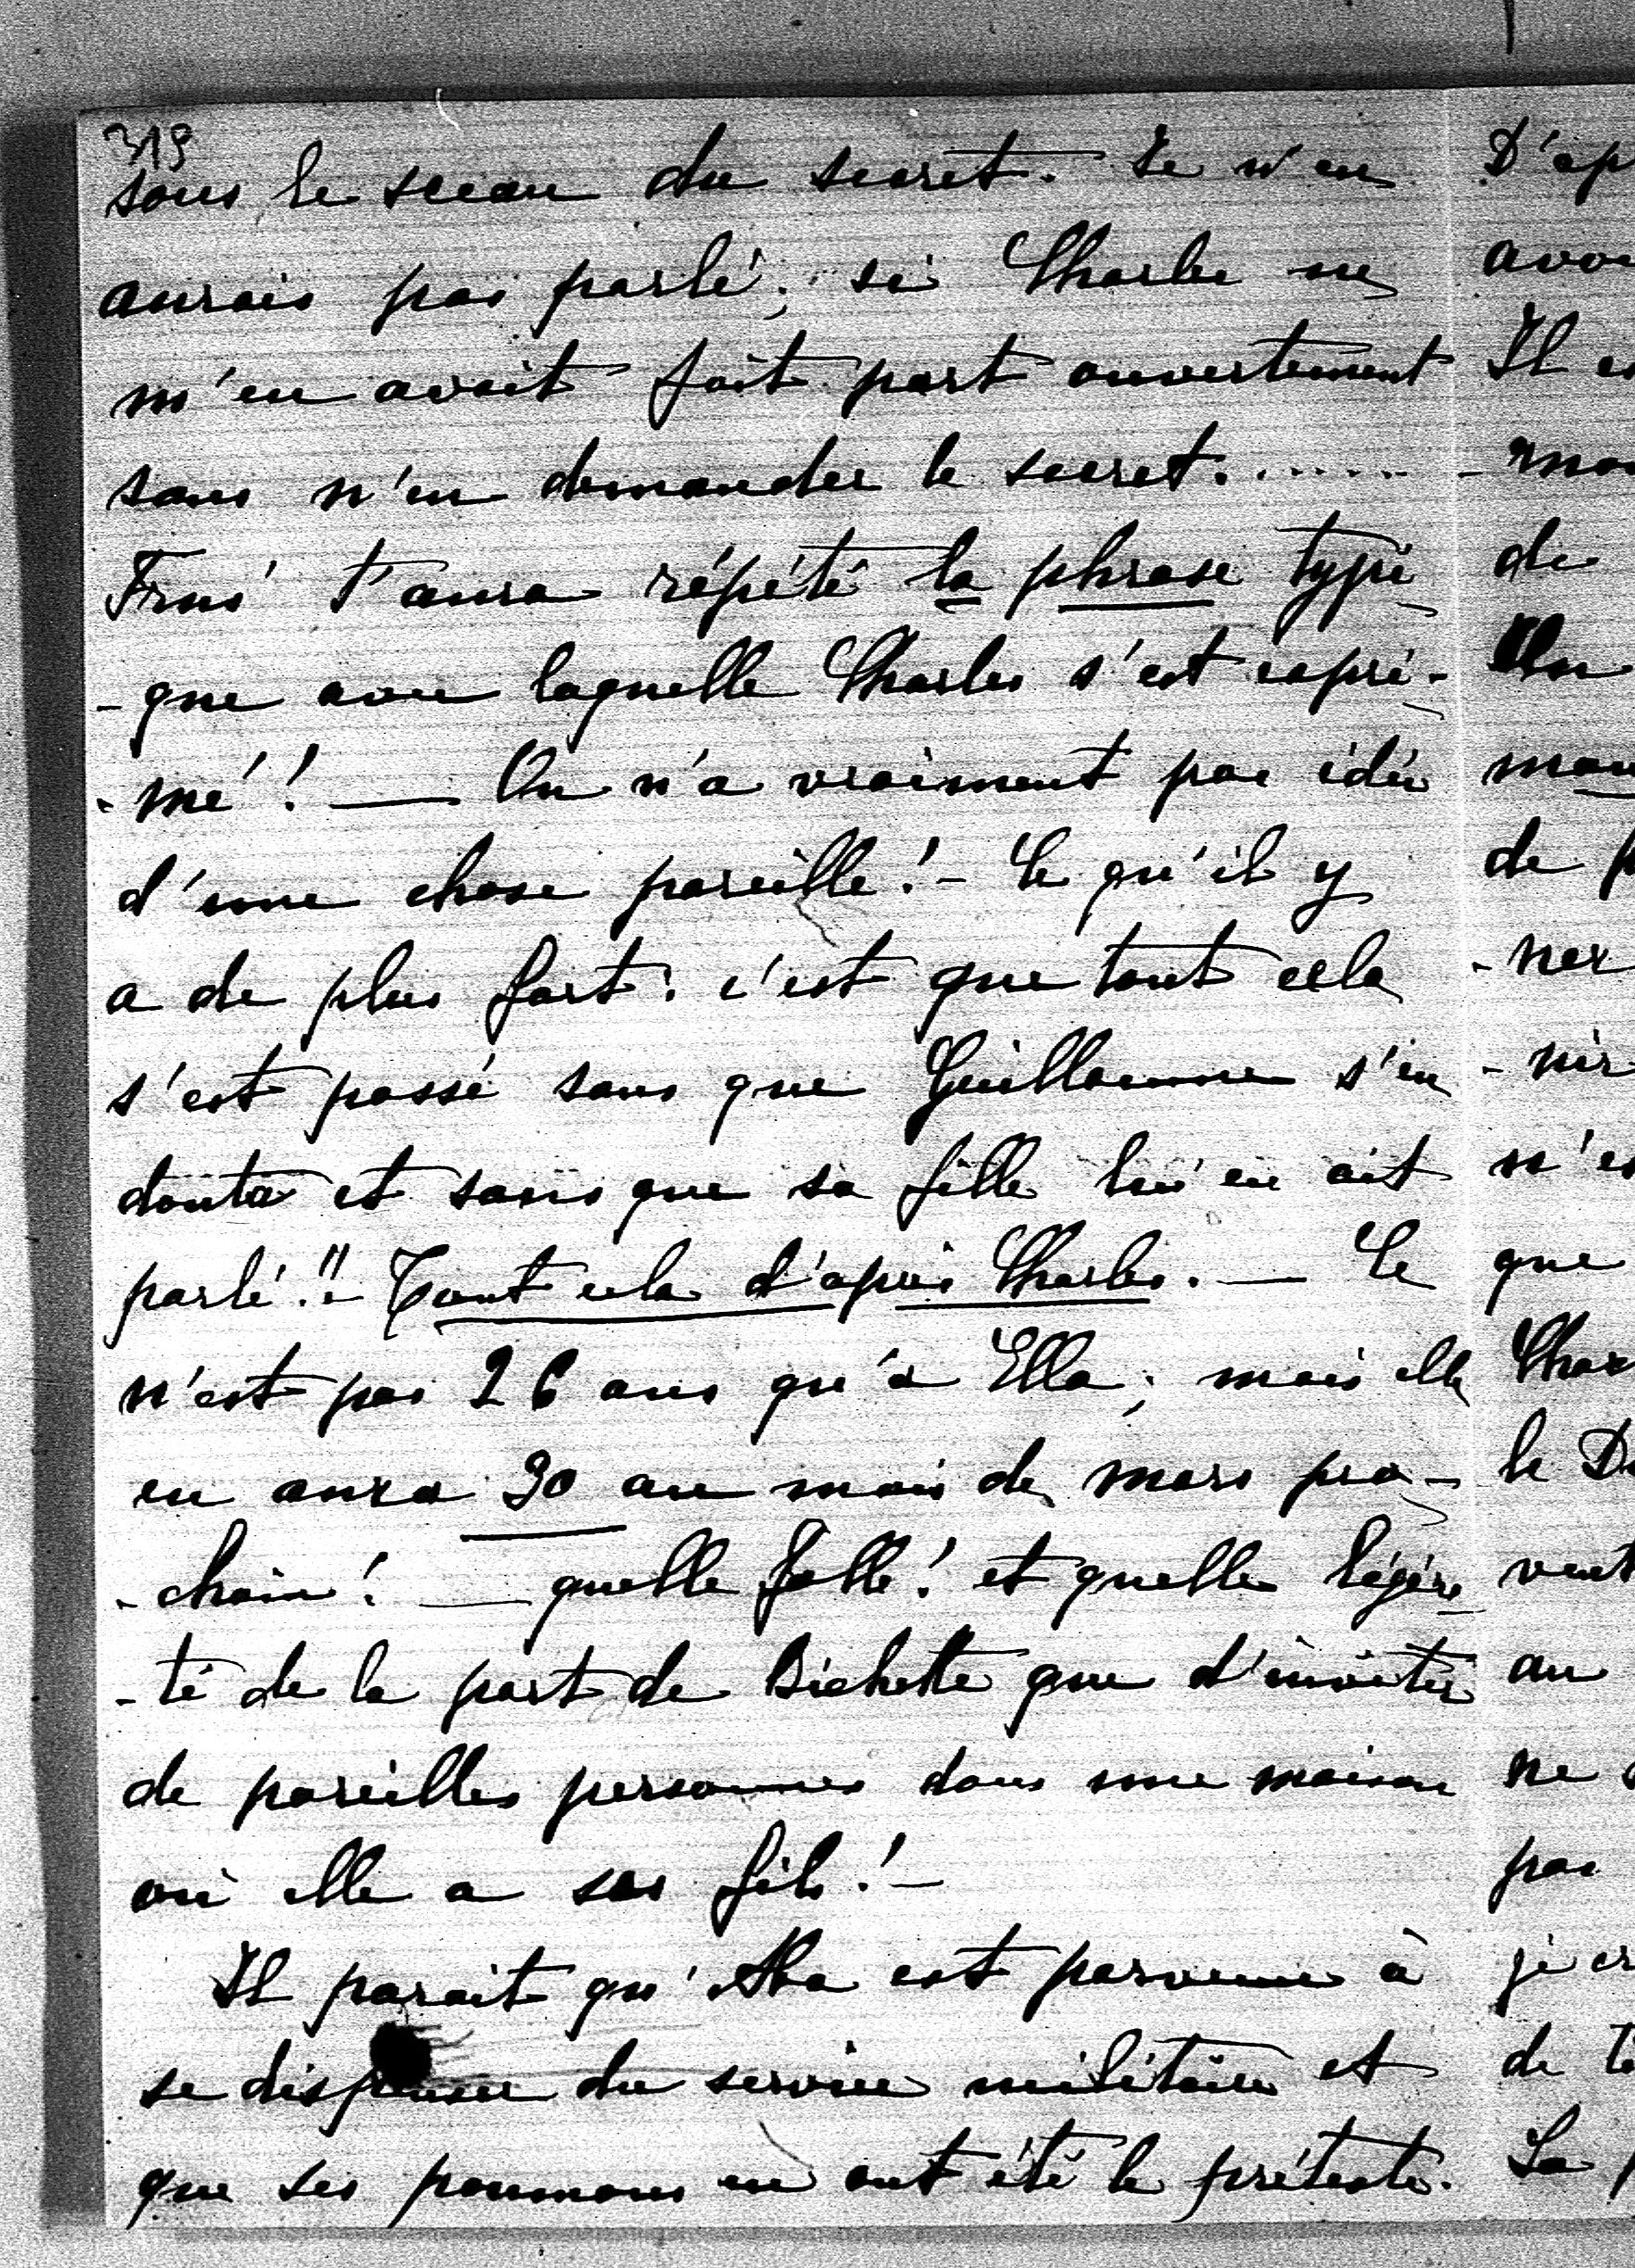 319
sous le sceau du secret. Je n'en
aurais pas parlé, si Charles ne
m'en avait fait part ouvertement
sans m'en demander le secret. . . . . .
t'aura répété la phrase typi
-que avec laquelle Charles s'est expri-
-mé! — On n'a vraiment pas idée
d'une chose pareille! - Ce qu'il y
a de plus fort: c'est que tout cela
s'est passé sans que Guillaume s'en
doute et sans que sa fille lui en ait
parlé!! - Tout cela d'après Charles. — Ce
n'est pas 26 ans qu'a Ella; mais elle
en aura 30 au mois de mars pro-
-chain! — quelle folle! et quelle légère
-té de la part de Bichette que d'inviter
de pareilles personnes dans une maison
où elle a ses fils! -
Il parait qu' est parvenu à
se dispenser du service militaire et
que ses poumons en ont été le prétexte.
D'ap
avoi
Il es
de
Un
mau
de p
-ner
-nir
n'es
que
Char
le D
veut
au
ne
pas
je cr
de te
La p